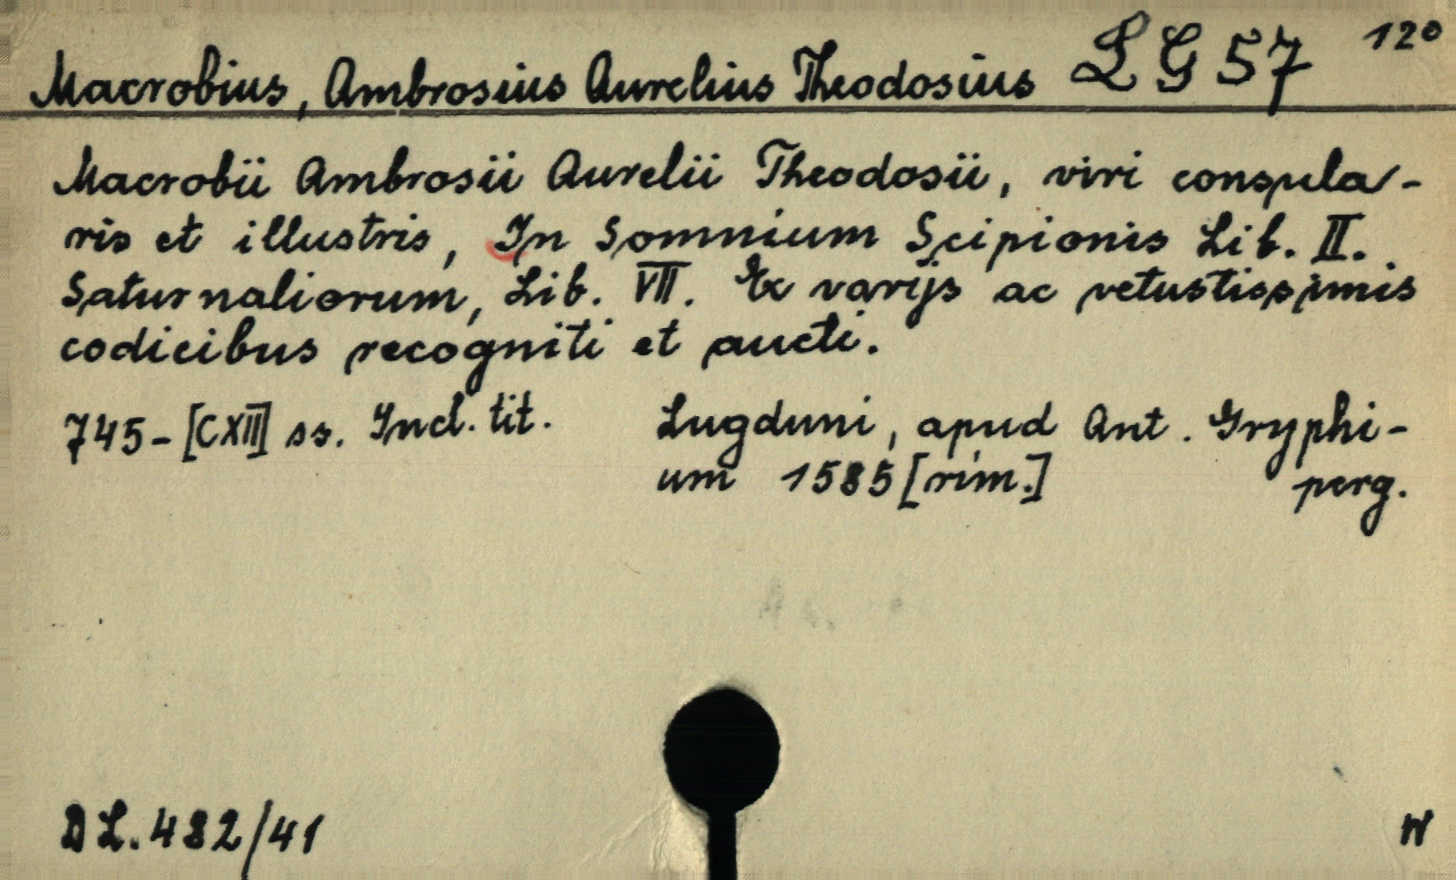 Macrobius, Ambrosius Aurelius Theodosius LG 57 120
Macrobii Ambrosii Aurelii Theodosii, viri consula-
ris et illustris, In Somnium Scipionis Lib. II.
Saturnaliorum, Lib. VII. Ex varijs ac vetustissimis
codicibus recogniti et aucti.
745-[CXII] ss. Incl. tit. Lugduni, apud Ant. Gryphi-
um 1585 [rim.] perg.
DL. 482/41 W